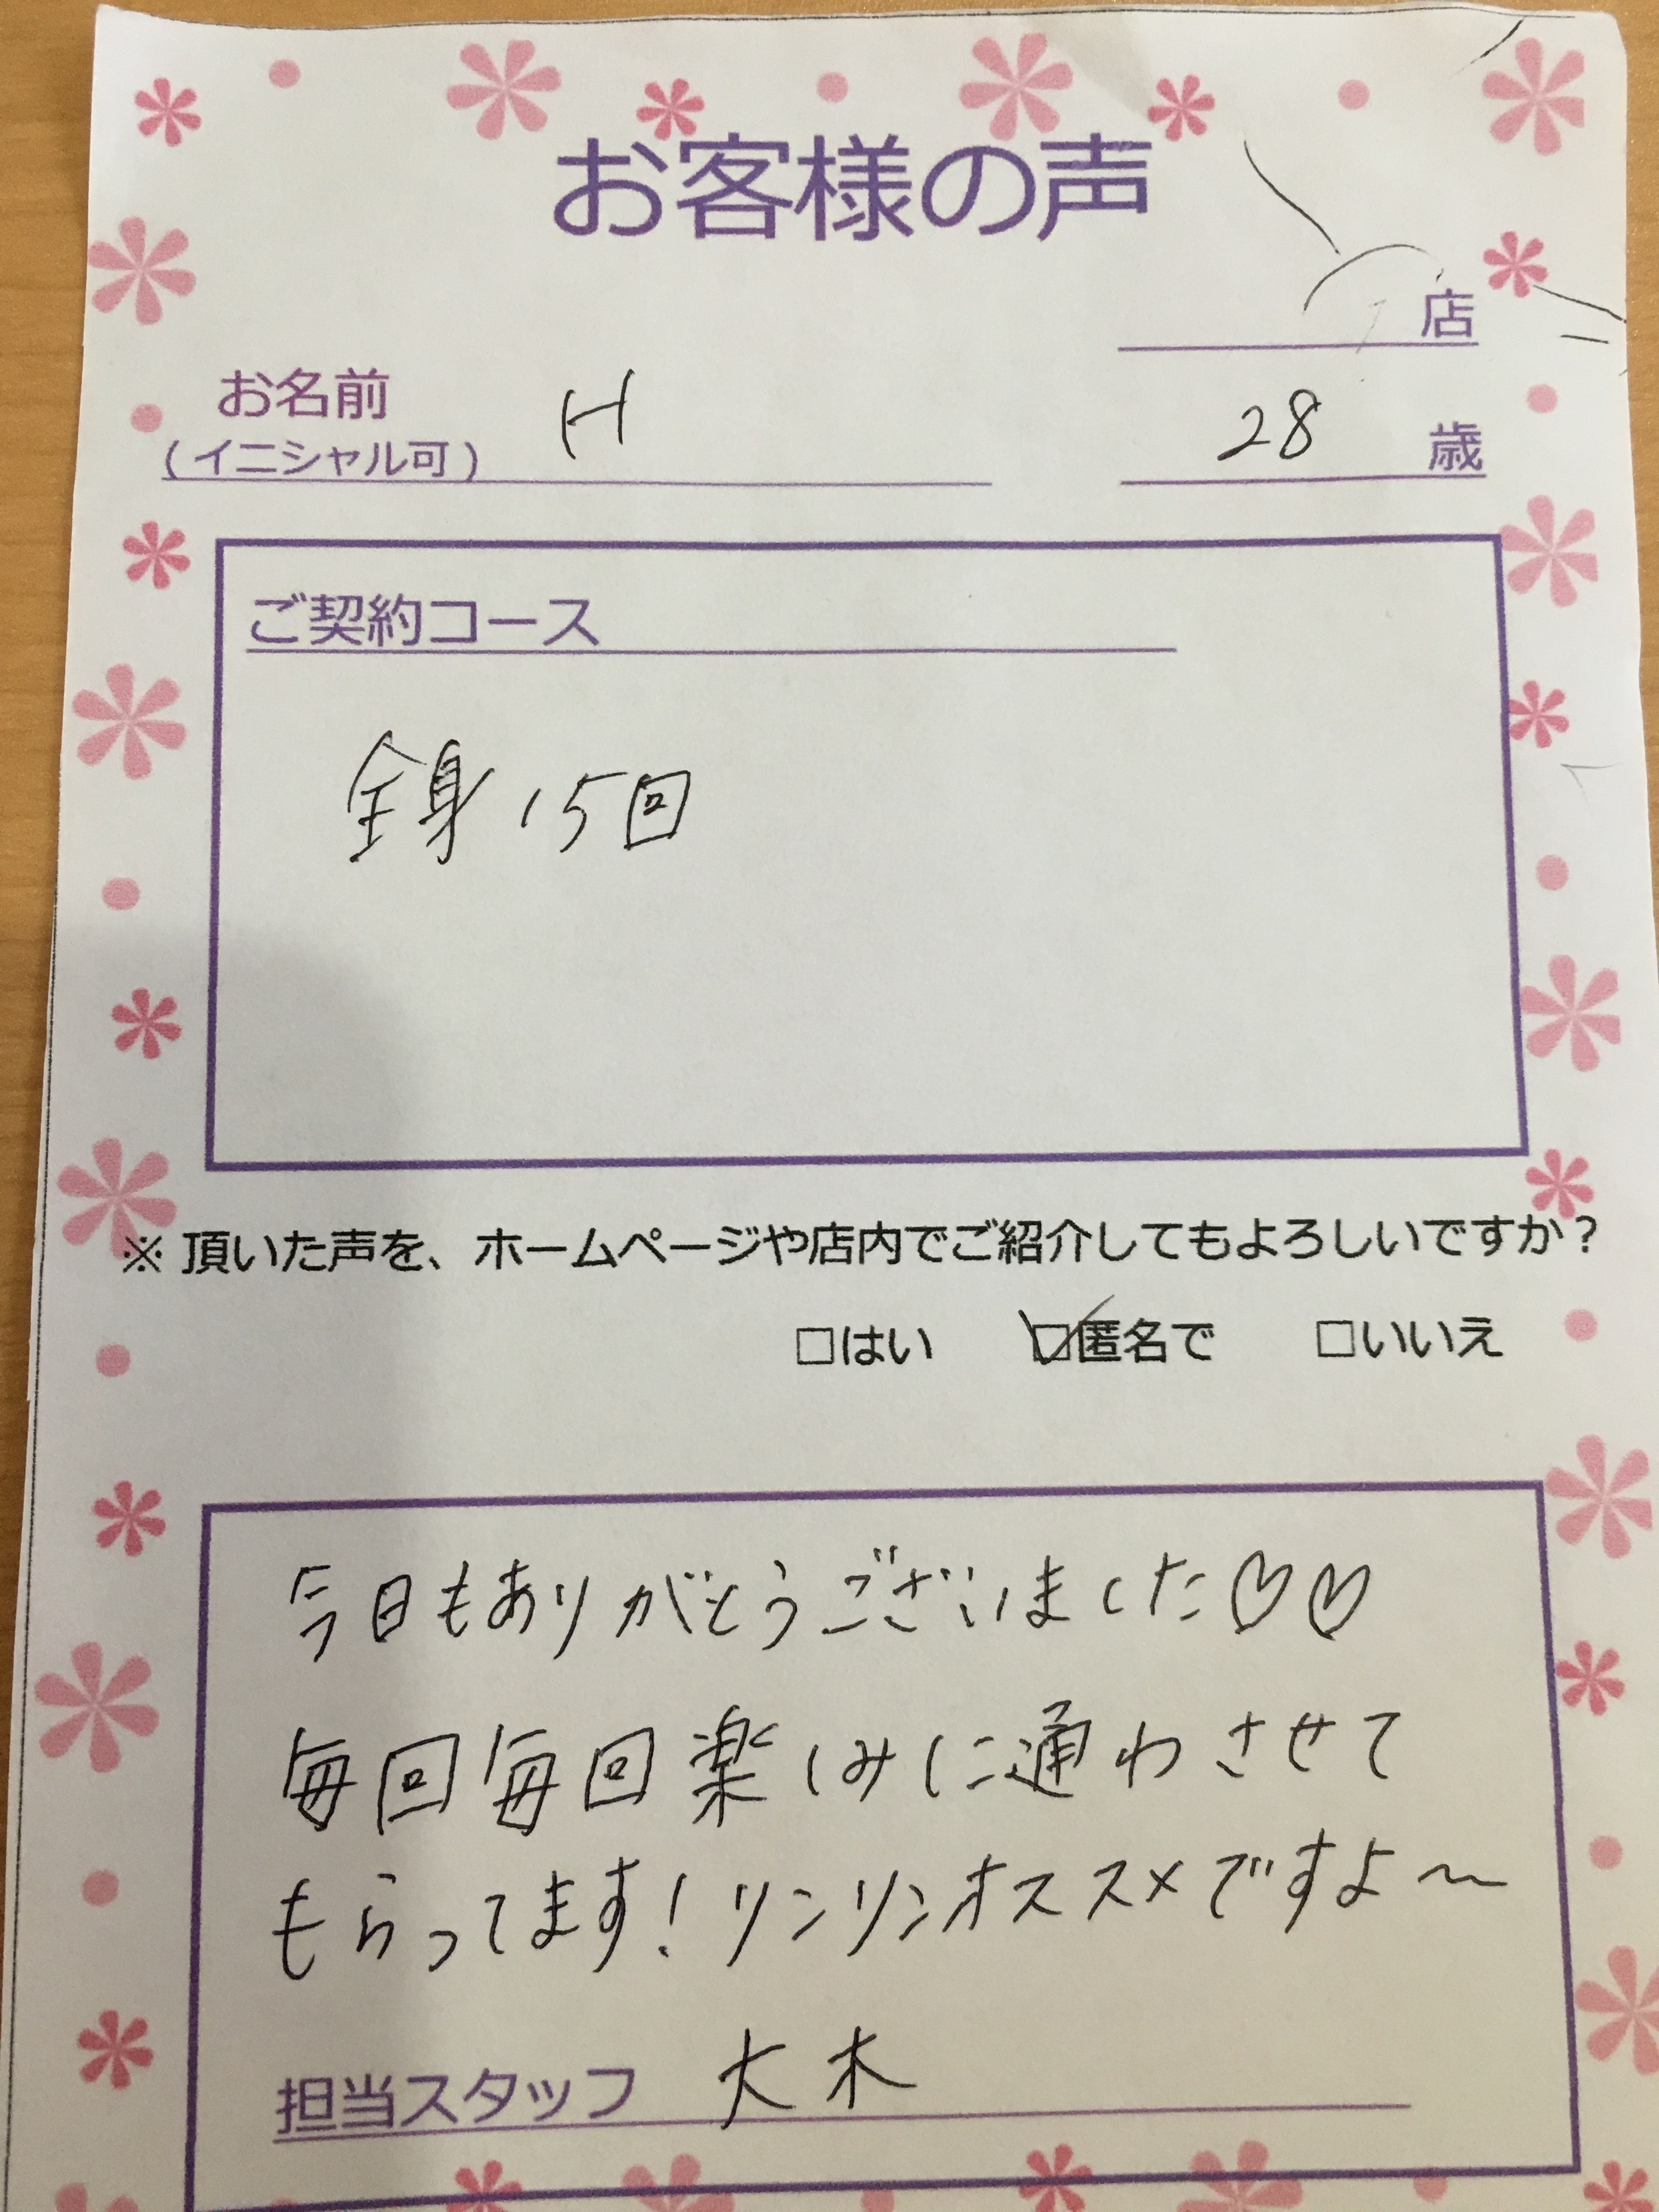 お客様の声
店
お名前
（イニシャル可） H 28 歳
ご契約コース
全身 15回
※ 頂いた声を、ホームページや店内でご紹介してもよろしいですか？
□はい ☑匿名で □いいえ
今日もありがとうございました♡♡
毎回毎回楽しみに通わさせて
もらってます！リンリンオススメですよ〜
担当スタッフ 大木